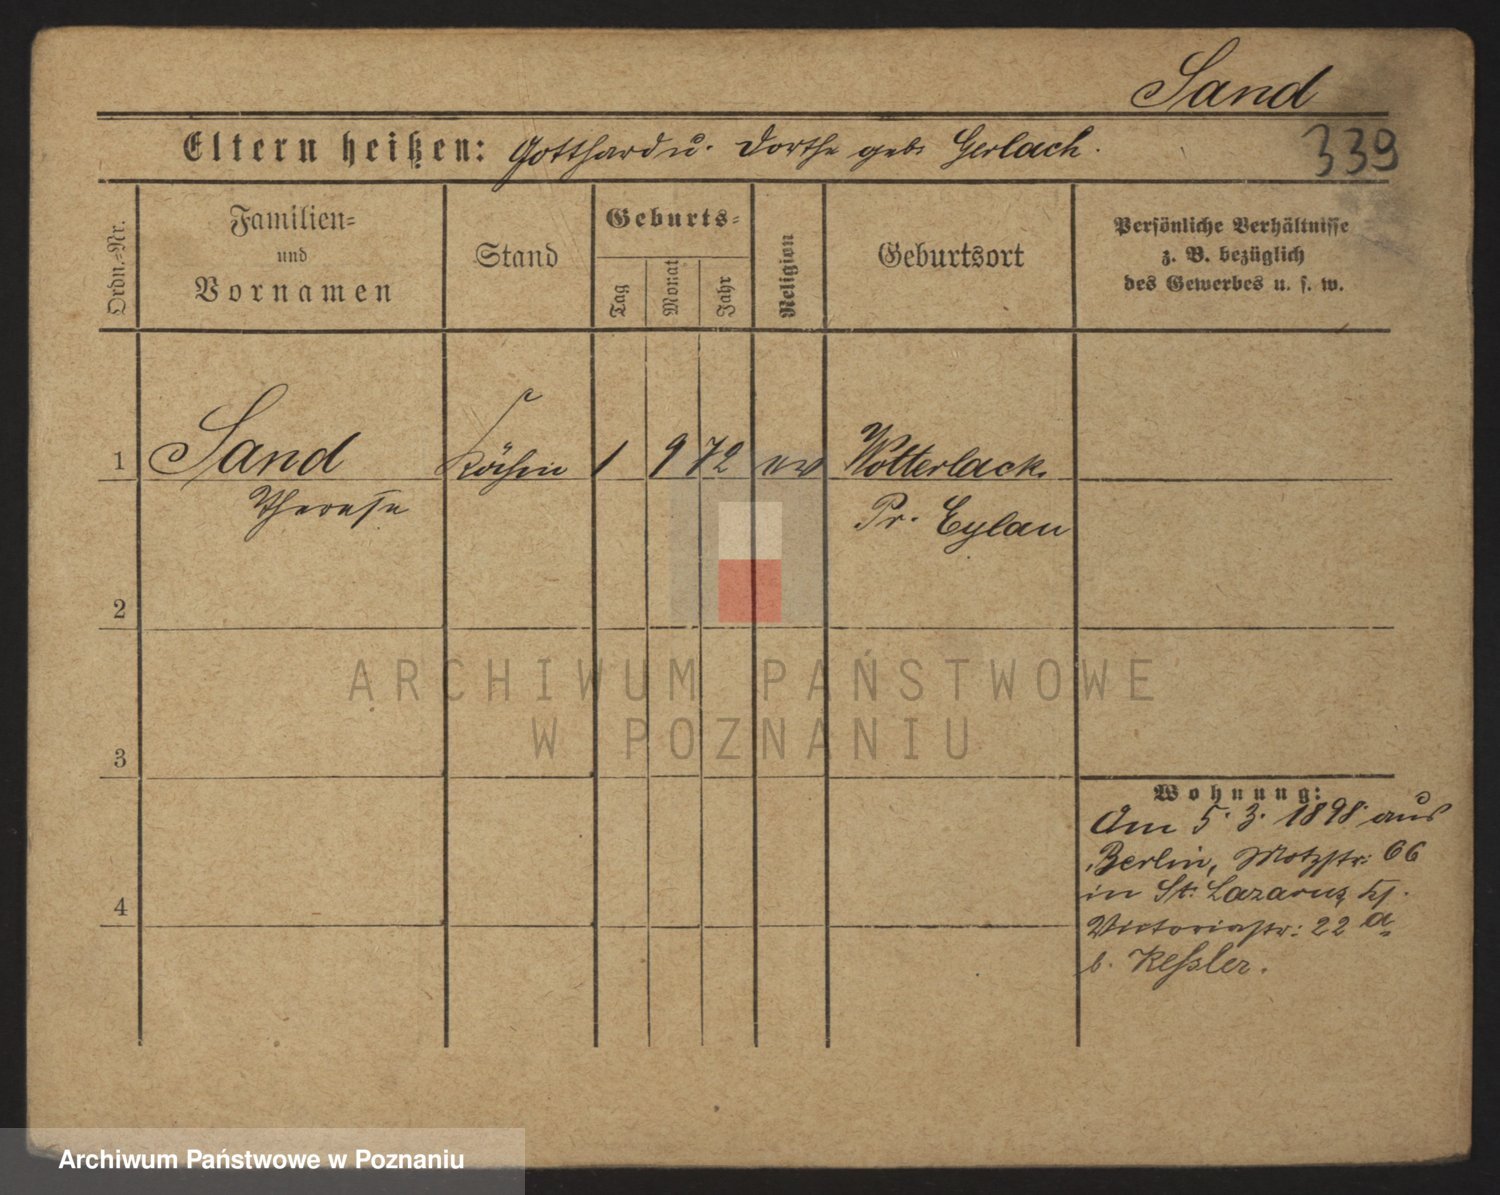 Sand
Eltern heißen: Gotthard u. Dorthe geb. Gerlach.
339
Ordn.-Nr.
Familien-
und
Vornamen
Stand
Geburts-
Tag
Monat
Jahr
Religion
Geburtsort
Persönliche Verhältnisse
z. B. bezüglich
des Gewerbes u. s. w.
1 Sand Köchin 1 9 72 ev Wotterlack
Therese Pr. Eylau
2
3
4
Wohnung:
Am 5. 3. 1898 aus
Berlin, Motzstr: 66
in St. Lazarus
Victoriastr: 22 a
b. Keßler.
ARCHIWUM PAŃSTWOWE
W POZNANIU
Archiwum Państwowe w Poznaniu